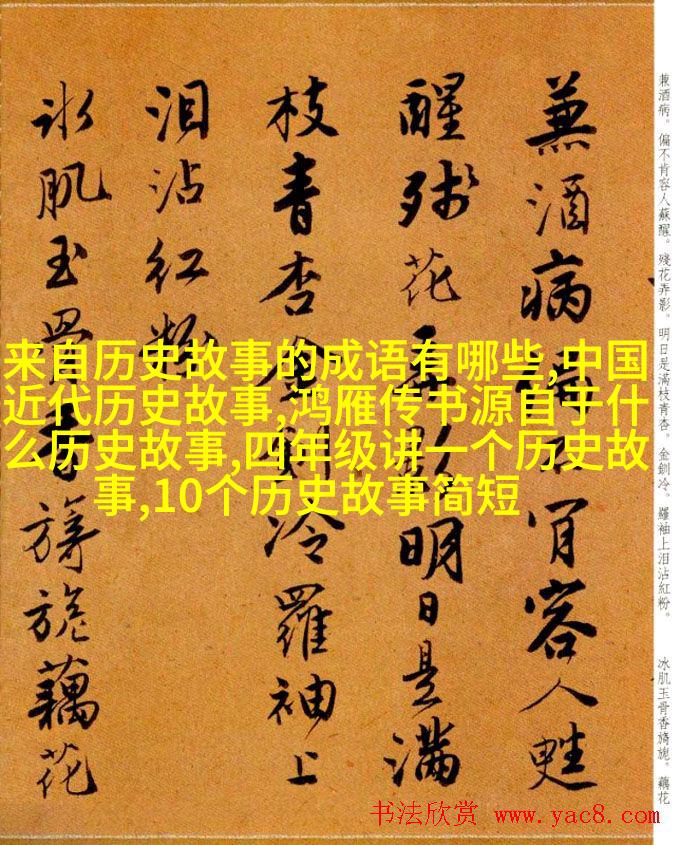 兼酒病偏不肯容人甦
醒殘花弄影明日是滿
枝青杏金釧冷羅袖上
泪沾紅粉
氷肌玉骨香旖旎藕花
来自历史故事的成语有哪些,中国
近代历史故事,鸿雁传书源自于什
么历史故事,四年级讲一个历史故
事,10个历史故事简短
兼酒病。偏不肯容人蘇醒。殘花弄影。明日是滿枝青杏。金釧冷。羅袖上泪沾紅粉。
冰肌玉骨香旖旎。藕花
书法欣赏 www.yac8.com